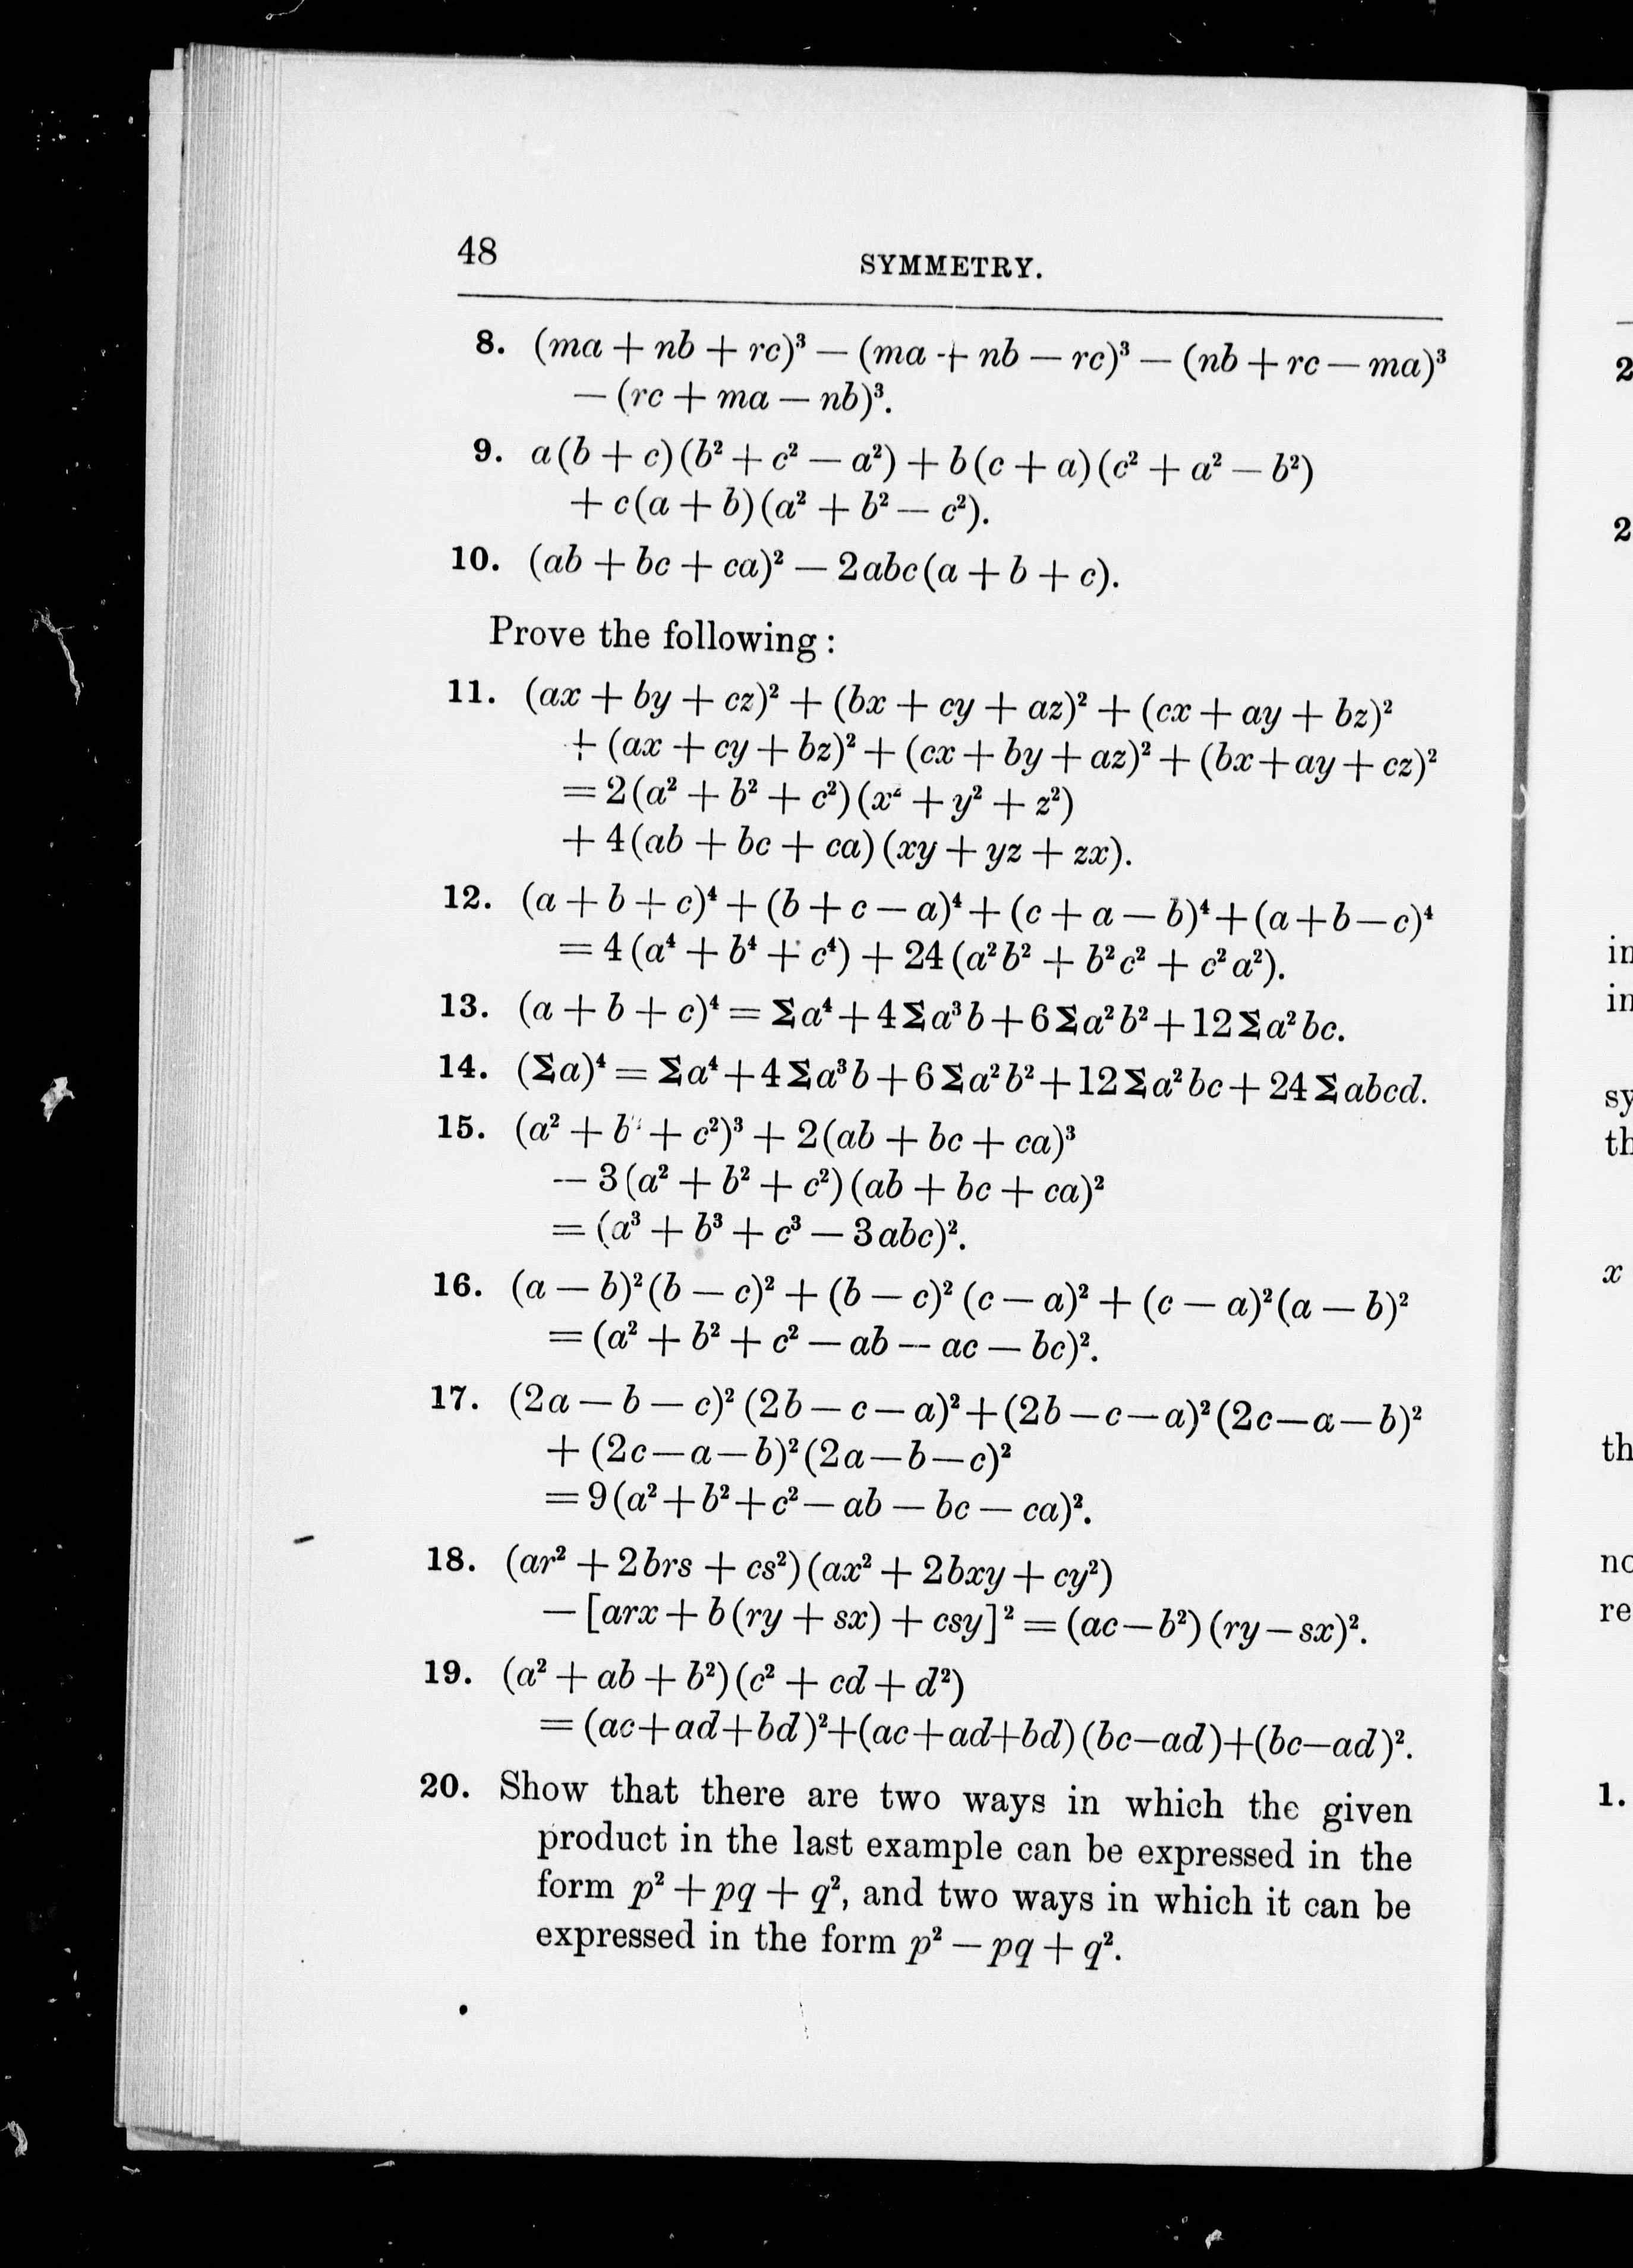 48
SYMMETRY.
8. (ma + nb + rc)³ — (ma + nb — rc)³ — (nb + rc — ma)³
— (rc + ma — nb)³.
9. a(b + c)(b² + c² — a²) + b(c + a)(c² + a² — b²)
+ c(a + b)(a² + b² — c²).
10. (ab + bc + ca)² — 2abc(a + b + c).
Prove the following:
11. (ax + by + cz)² + (bx + cy + az)² + (cx + ay + bz)²
+ (ax + cy + bz)² + (cx + by + az)² + (bx + ay + cz)²
= 2(a² + b² + c²)(x² + y² + z²)
+ 4(ab + bc + ca)(xy + yz + zx).
12. (a + b + c)⁴ + (b + c — a)⁴ + (c + a — b)⁴ + (a + b — c)⁴
= 4(a⁴ + b⁴ + c⁴) + 24(a²b² + b²c² + c²a²).
13. (a + b + c)⁴ = Σa⁴ + 4Σa³b + 6Σa²b² + 12Σa²bc.
14. (Σa)⁴ = Σa⁴ + 4Σa³b + 6Σa²b² + 12Σa²bc + 24Σabcd.
15. (a² + b² + c²)³ + 2(ab + bc + ca)³
— 3(a² + b² + c²)(ab + bc + ca)²
= (a³ + b³ + c³ — 3abc)².
16. (a — b)²(b — c)² + (b — c)²(c — a)² + (c — a)²(a — b)²
= (a² + b² + c² — ab — ac — bc)².
17. (2a — b — c)²(2b — c — a)² + (2b — c — a)²(2c — a — b)²
+ (2c — a — b)²(2a — b — c)²
= 9(a² + b² + c² — ab — bc — ca)².
18. (ar² + 2brs + cs²)(ax² + 2bxy + cy²)
— [arx + b(ry + sx) + csy]² = (ac — b²)(ry — sx)².
19. (a² + ab + b²)(c² + cd + d²)
= (ac + ad + bd)² + (ac + ad + bd)(bc — ad) + (bc — ad)².
20. Show that there are two ways in which the given
product in the last example can be expressed in the
form p² + pq + q², and two ways in which it can be
expressed in the form p² — pq + q².
2
2
in
in
sy
th
x
th
no
re
1.